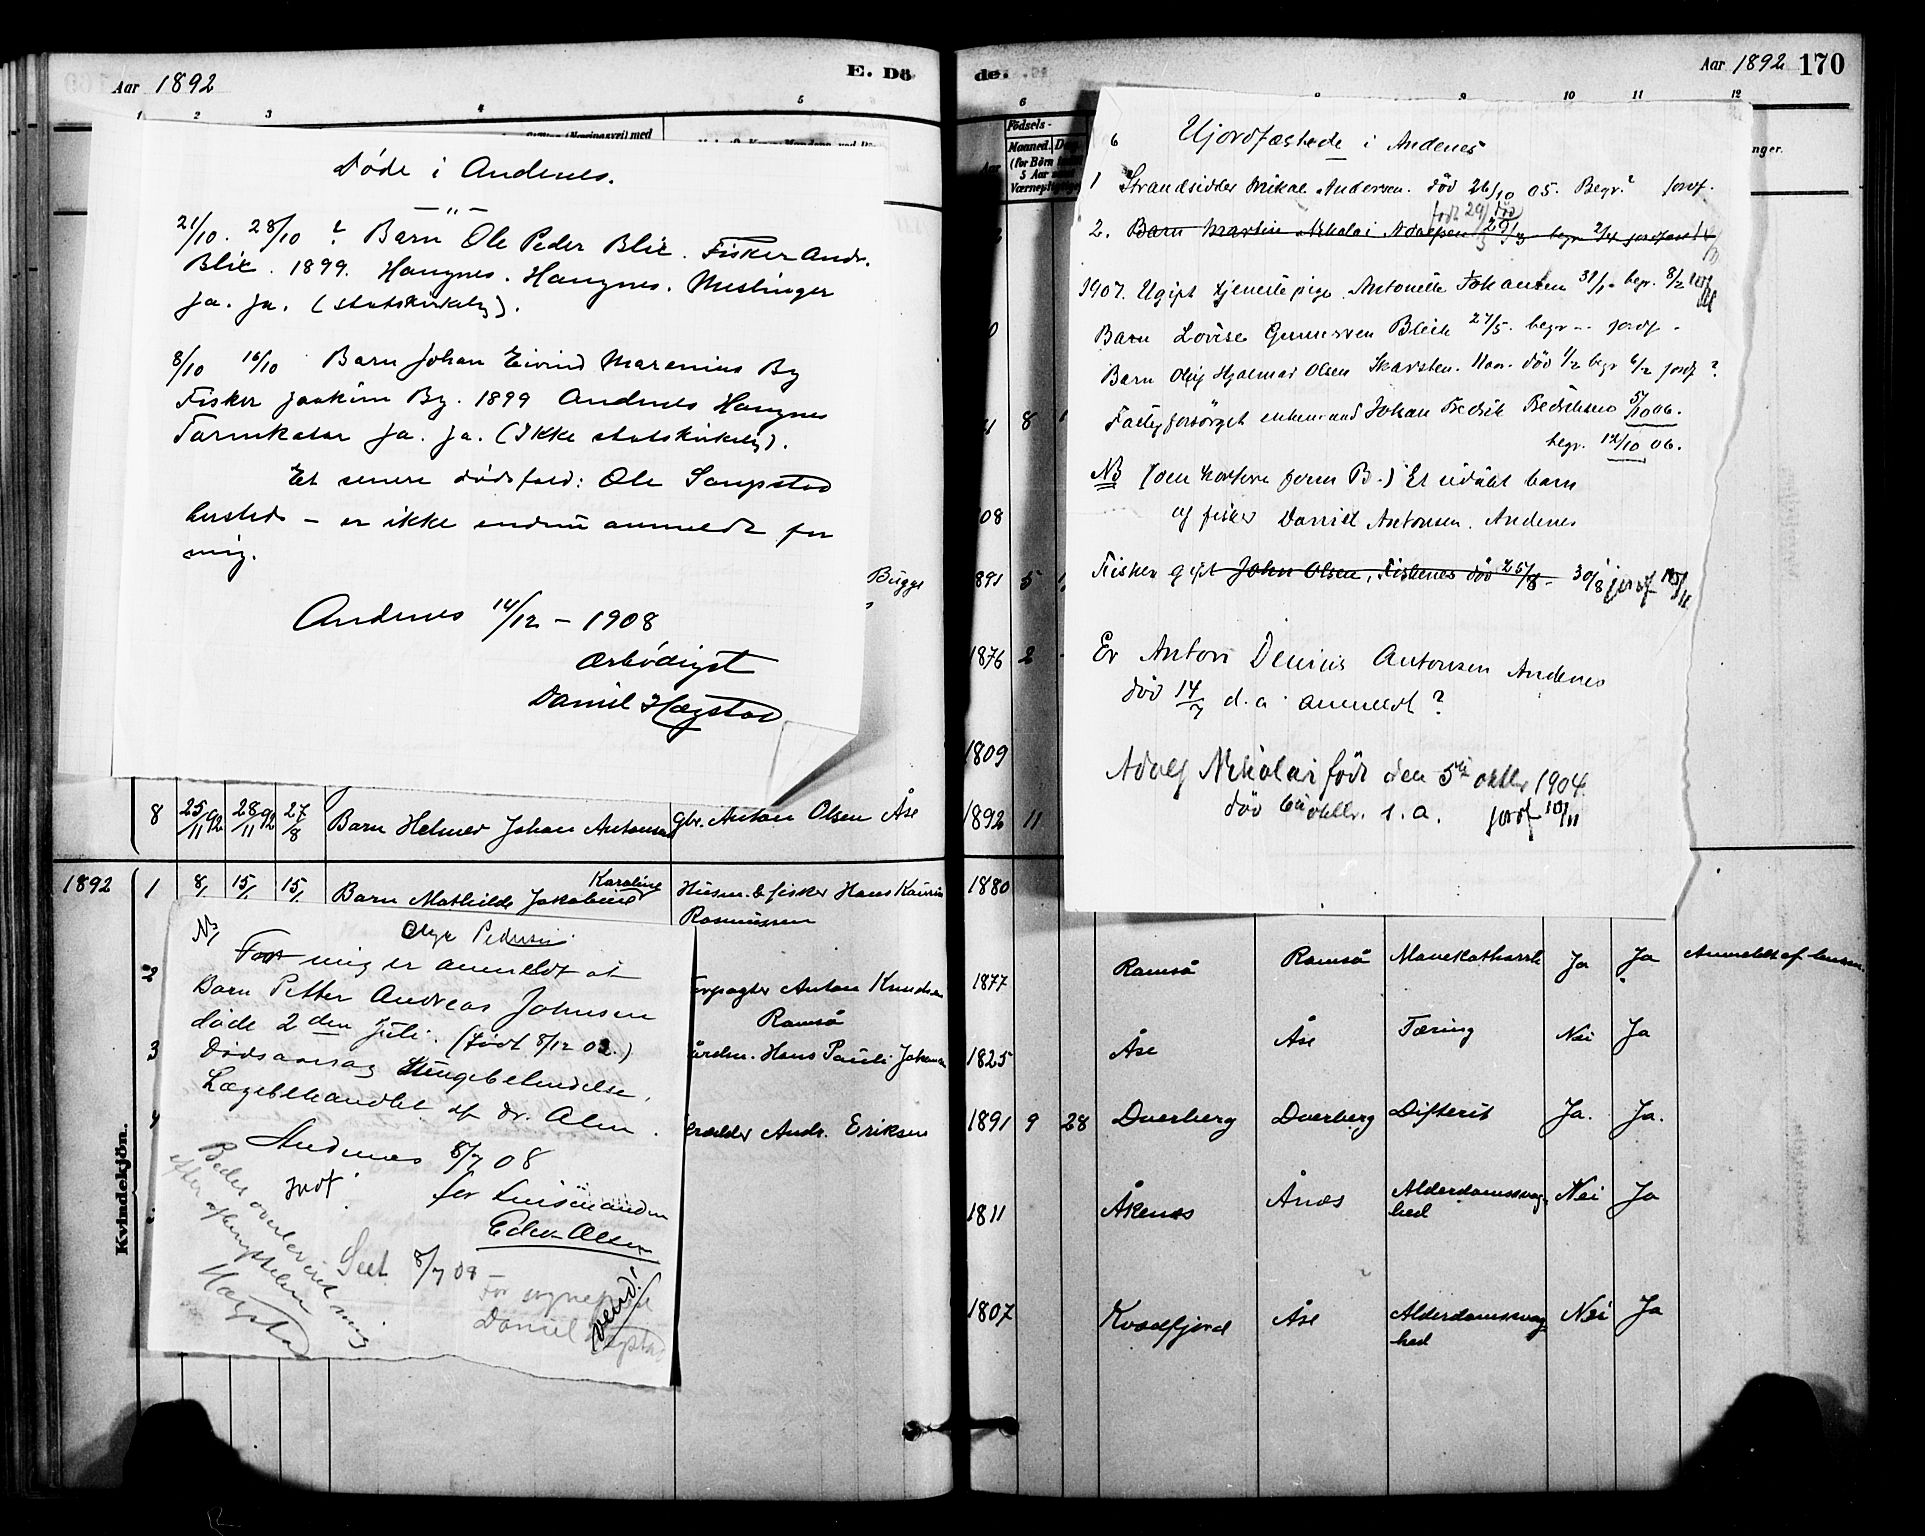 Aar 1892
E. Dö
1 2 3 4 5
Døde i Andenes.
21/10. 28/10 ? Barn Ole Peder Blix. Fisker Andr.
Blix. 1899. Haugnes. Haugnes. Meslinger
ja. ja. (statskirkelig).
8/10 16/10 Barn Johan Eivind Marenius By
Fisker Joakim By. 1899 Andenes Haugnes
Tarmkatar ja. ja. (Ikke statskirkelig).
Et senere dødsfald: Ole
er ikke endnu anmeldt for
mig.
Andenes 14/12 - 1908
Ærbødigst
Daniel Hægstad
Bugge
8 25/11 92 28/11 92 27/8 Barn Helmer Johan Antonsen Gbr. Anton Olsen Åse
1892 1 8/1 15/1 15/1 Barn Mathilde Jakobine Karoline Husm. & fisker Hans Kaurin
Rasmussen
N3
Olga Pedersen
For mig er anmeldt at
Barn Petter Andreas Johnsen
døde 2den Juli. (født 8/12 02.)
Dødsaarsag Lungebetendelse.
Lægebehandlet af dr. Alm.
Andenes 8/7 08
jordf.
for Lensmanden
Edev. Olsen
Seet 8/7 08
For sognepræst
Daniel Hægstad
vend!
Bedes overleveret mig
efter afbenyttelsen
Hægstad
2
Forpagter Anton Knudsen
Ramså
3
Hans Pauli Johansen
4
Andr. Eriksen
Kvindekjön.
de.
Aar 1892 170
6 8 9 10 11 12
Födsels-
Maaned. Dag.
(for Börn
5 Aar
Ujordfæstede i Andenes
1 Strandsidder Mikal Andersen. død 26/10 05. Begr? jordf.
2. Barn Martin Nikolai Adolfsen født 29/3 død 29/3 begr 2/4 jordfæst
1907. Ugift tjenestepige Antonette Johansen 31/1. begr. 8/2
Barn Lovise Gunnersen Bleik 27/5. begr -- jordf -
Barn Oluf Hjalmar Olsen Skarsten. Nor. død 1/2 begr 6/2 jordf ?
Fattigforsørget enkemand Johan Fredrik Fredriksen 5/10 06.
begr. 12/10 06.
NB (den kortere form B.) Et udøbt barn
af fisker Daniel Antonsen. Andenes
Fisker gift John Olsen, Fiskenes død 25/8 - 30/8 jordf 10/11
Er Anton Denius Antonsen Andenes
død 14/7 d.a. anmeldt ?
Adolf Nikolai født den 5te oktbr 1904.
død 6te oktbr. s.a. jordf 10/11
8
1891 5
1876 2
1809
1892 11
1880
1877 Ramså Ramså Mavekatharrh Ja Ja Anmeldt af lensm.
1825 Åse Åse Tæring Nei Ja
1891 9 28 Dverberg Dverberg Difterit Ja. Ja.
1811 Åkenes Ånes Alderdomssvag-
hed Nei Ja
1807 Kvædfjord Åse Alderdomssvag-
hed Nei Ja